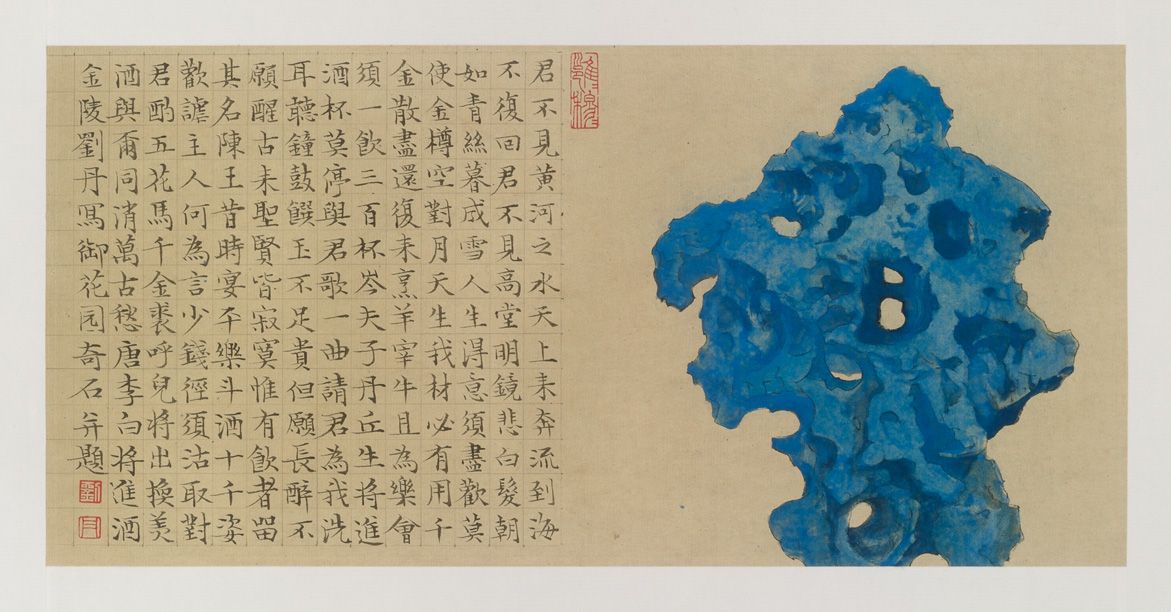 君不見黄河之水天上来奔流到海
不復回君不見高堂明鏡悲白髮朝
如青絲暮成雪人生得意須盡歡莫
使金樽空對月天生我材必有用千
金散盡還復来烹羊宰牛且為樂會
須一飲三百杯岑夫子丹丘生將進
酒杯莫停與君歌一曲請君為我洗
耳聽鐘鼓饌玉不足貴但願長醉不
願醒古来聖賢皆寂寞惟有飲者留
其名陳王昔時宴平樂斗酒十千姿
歡謔主人何為言少錢徑須沽取對
君酌五花馬千金裘呼兒將出換美
酒與爾同消萬古愁唐李白將進酒
金陵劉丹寫御花园奇石并題
劉
丹